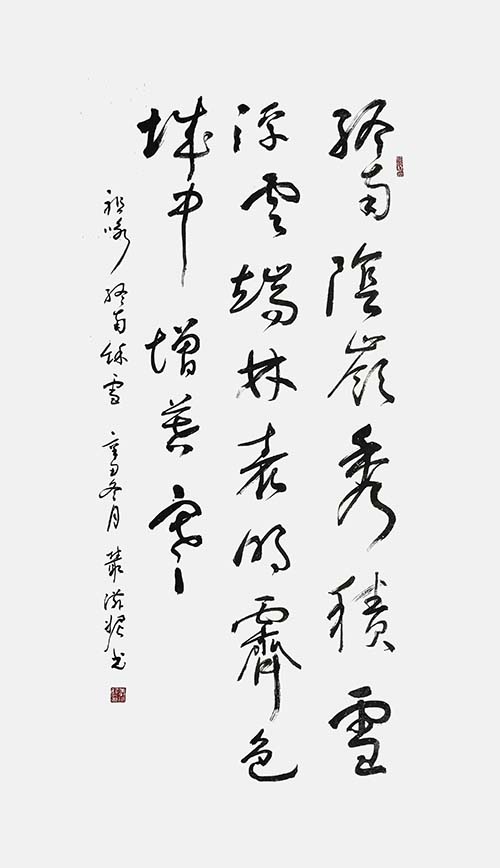 終南陰嶺秀積雪
浮雲端林表明霽色
城中增暮寒
祖咏 終南餘雪 辛丑冬月 叢书